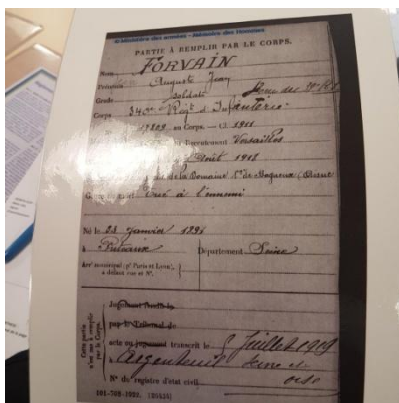 Ministère des armées - Mémoire des Hommes
PARTIE À REMPLIR PAR LE CORPS.
Nom FORVAIN
Prénoms Auguste Jean
Grade soldat
Corps 340e Régt d'Infanterie
N° 17809 au Corps. — Cl. 1911
Recrutement Versailles
août 1918
de la Domaine Cne de Bagneux (Aisne
Genre de mort Tué à l'ennemi
Né le 23 janvier 1891
à Puteaux Département Seine
Arrt municipal (pr Paris et Lyon),
à défaut rue et N°.
Cette partie
n'est pas à remplir
par le Corps.
Jugement rendu le
par le Tribunal de
acte ou jugement transcrit le 8 juillet 1919
Argenteuil Seine et
oise
N° du registre d'état civil
101-708-1922. [26434]